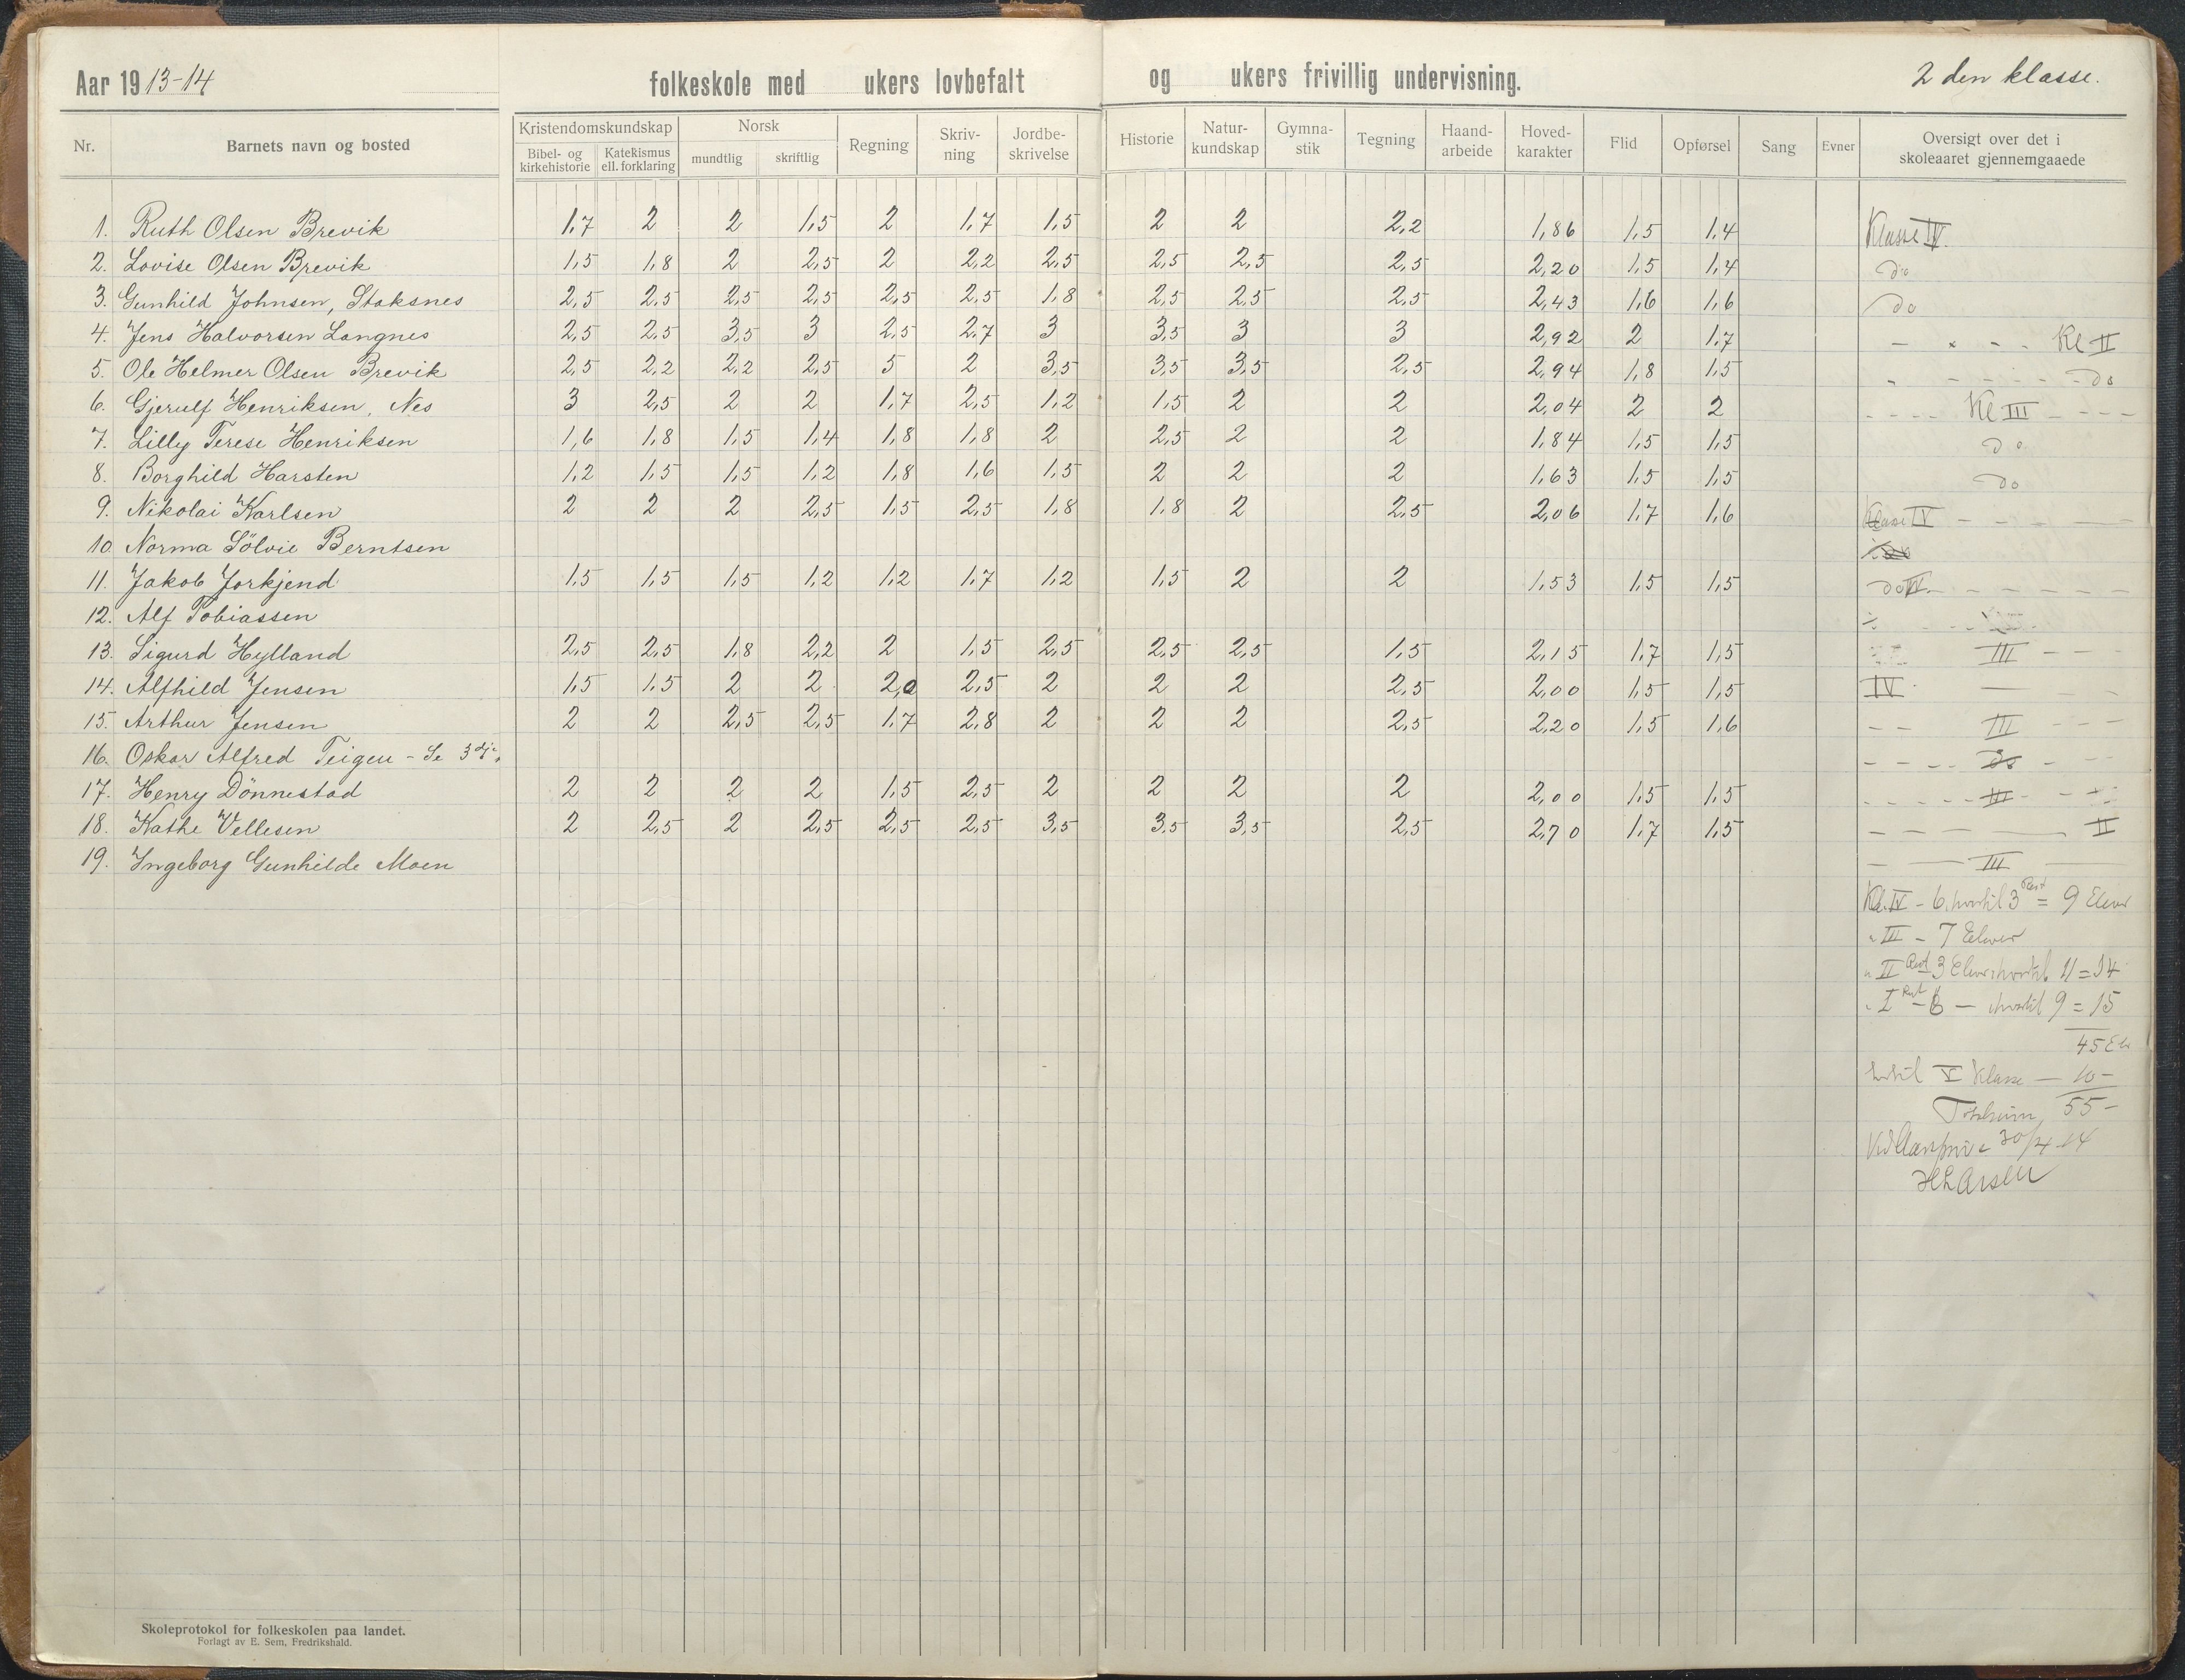 Aar 1913-14 folkeskole med ukers lovbefalt og ukers frivillig undervisning. 2 den klasse.
Nr. Barnets navn og bosted Kristendomskundskap Bibel- og kirkehistorie Katekismus ell. forklaring Norsk mundtlig skriftlig Regning Skriv-ning Jordbe-skrivelse Historie Natur-kundskap Gymna-stik Tegning Haand-arbeide Hoved-karakter Flid Opførsel Sang Evner Oversigt over det i skoleaaret gjennemgaaede
1. Ruth Olsen Brevik 1,7 2 2 1,5 2 1,7 1,5 2 2 2,2 1,86 1,5 1,4 Klasse IV.
2. Lovise Olsen Brevik 1,5 1,8 2 2,5 2 2,2 2,5 2,5 2,5 2,5 2,20 1,5 1,4 do
3. Gunhild Johnsen, Staksnes 2,5 2,5 2,5 2,5 2,5 2,5 1,8 2,5 2,5 2,5 2,43 1,6 1,6 do
4. Jens Halvorsen Langnes 2,5 2,5 3,5 3 2,5 2,7 3 3,5 3 3 2,92 2 1,7 Kl II
5. Ole Helmer Olsen Brevik 2,5 2,2 2,2 2,5 5 2 3,5 3,5 3,5 2,5 2,94 1,8 1,5 do
6. Gjerulf Henriksen, Nes 3 2,5 2 2 1,7 2,5 1,2 1,5 2 2 2,04 2 2 - - - - Kl III - - -
7. Lilly Terese Henriksen 1,6 1,8 1,5 1,4 1,8 1,8 2 2,5 2 2 1,84 1,5 1,5 do
8. Borghild Harsten 1,2 1,5 1,5 1,2 1,8 1,6 1,5 2 2 2 1,63 1,5 1,5 do
9. Nikolai Karlsen 2 2 2 2,5 1,5 2,5 1,8 1,8 2 2,5 2,06 1,7 1,6 Klasse IV
10. Norma Sölvie Berntsen
11. Jakob Jorkjend 1,5 1,5 1,5 1,2 1,2 1,7 1,2 1,5 2 2 1,53 1,5 1,5 do IV
12. Alf Tobiassen
13. Sigurd Hylland 2,5 2,5 1,8 2,2 2 1,5 2,5 2,5 2,5 1,5 2,15 1,7 1,5 III - - -
14. Alfhild Jensen 1,5 1,5 2 2 2,0 2,5 2 2 2 2,5 2,00 1,5 1,5 IV
15. Arthur Jensen 2 2 2,5 2,5 1,7 2,8 2 2 2 2,5 2,20 1,5 1,6 - - III - - -
16. Oskar Alfred Teigen - Se 3dje do
17. Henry Dönnestad 2 2 2 2 1,5 2,5 2 2 2 2 2,00 1,5 1,5 III
18. Kathe Vellesen 2 2,5 2 2,5 2,5 2,5 3,5 3,5 3,5 2,5 2,70 1,7 1,5 II
19. Ingeborg Gunhilde Moen III
Kl. IV - 6. hvortil 3 Rest = 9 Elever
" III - 7 Elever
" II Rest 3 Elever hvortil 11 = 14
" I Rest - 6 - hvortil 9 = 15
45 Elv
hertil V Klasse - 10 -
Totalsum 55 -
30/4 14
HLarsen
Skoleprotokol for folkeskolen paa landet.
Forlagt av E. Sem, Fredrikshald.